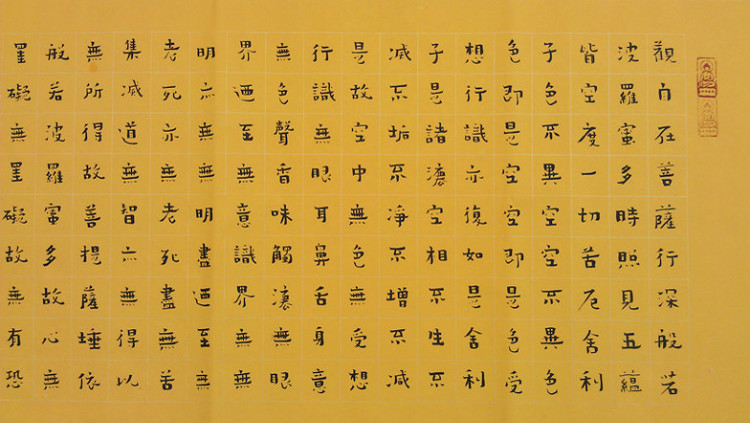 觀自在菩薩行深般若
波羅蜜多時照見五蘊
皆空度一切苦厄舍利
子色不異空空不異色
色即是空空即是色受
想行識亦復如是舍利
子是諸灋空相不生不
滅不垢不淨不增不減
是故空中無色無受想
行識無眼耳鼻舌身意
無色聲香味觸灋無眼
界迺至無意識界無無
明亦無無明盡迺至無
老死亦無老死盡無苦
集滅道無智亦無得以
無所得故菩提薩埵依
般若波羅蜜多故心無
罣礙無罣礙故無有恐